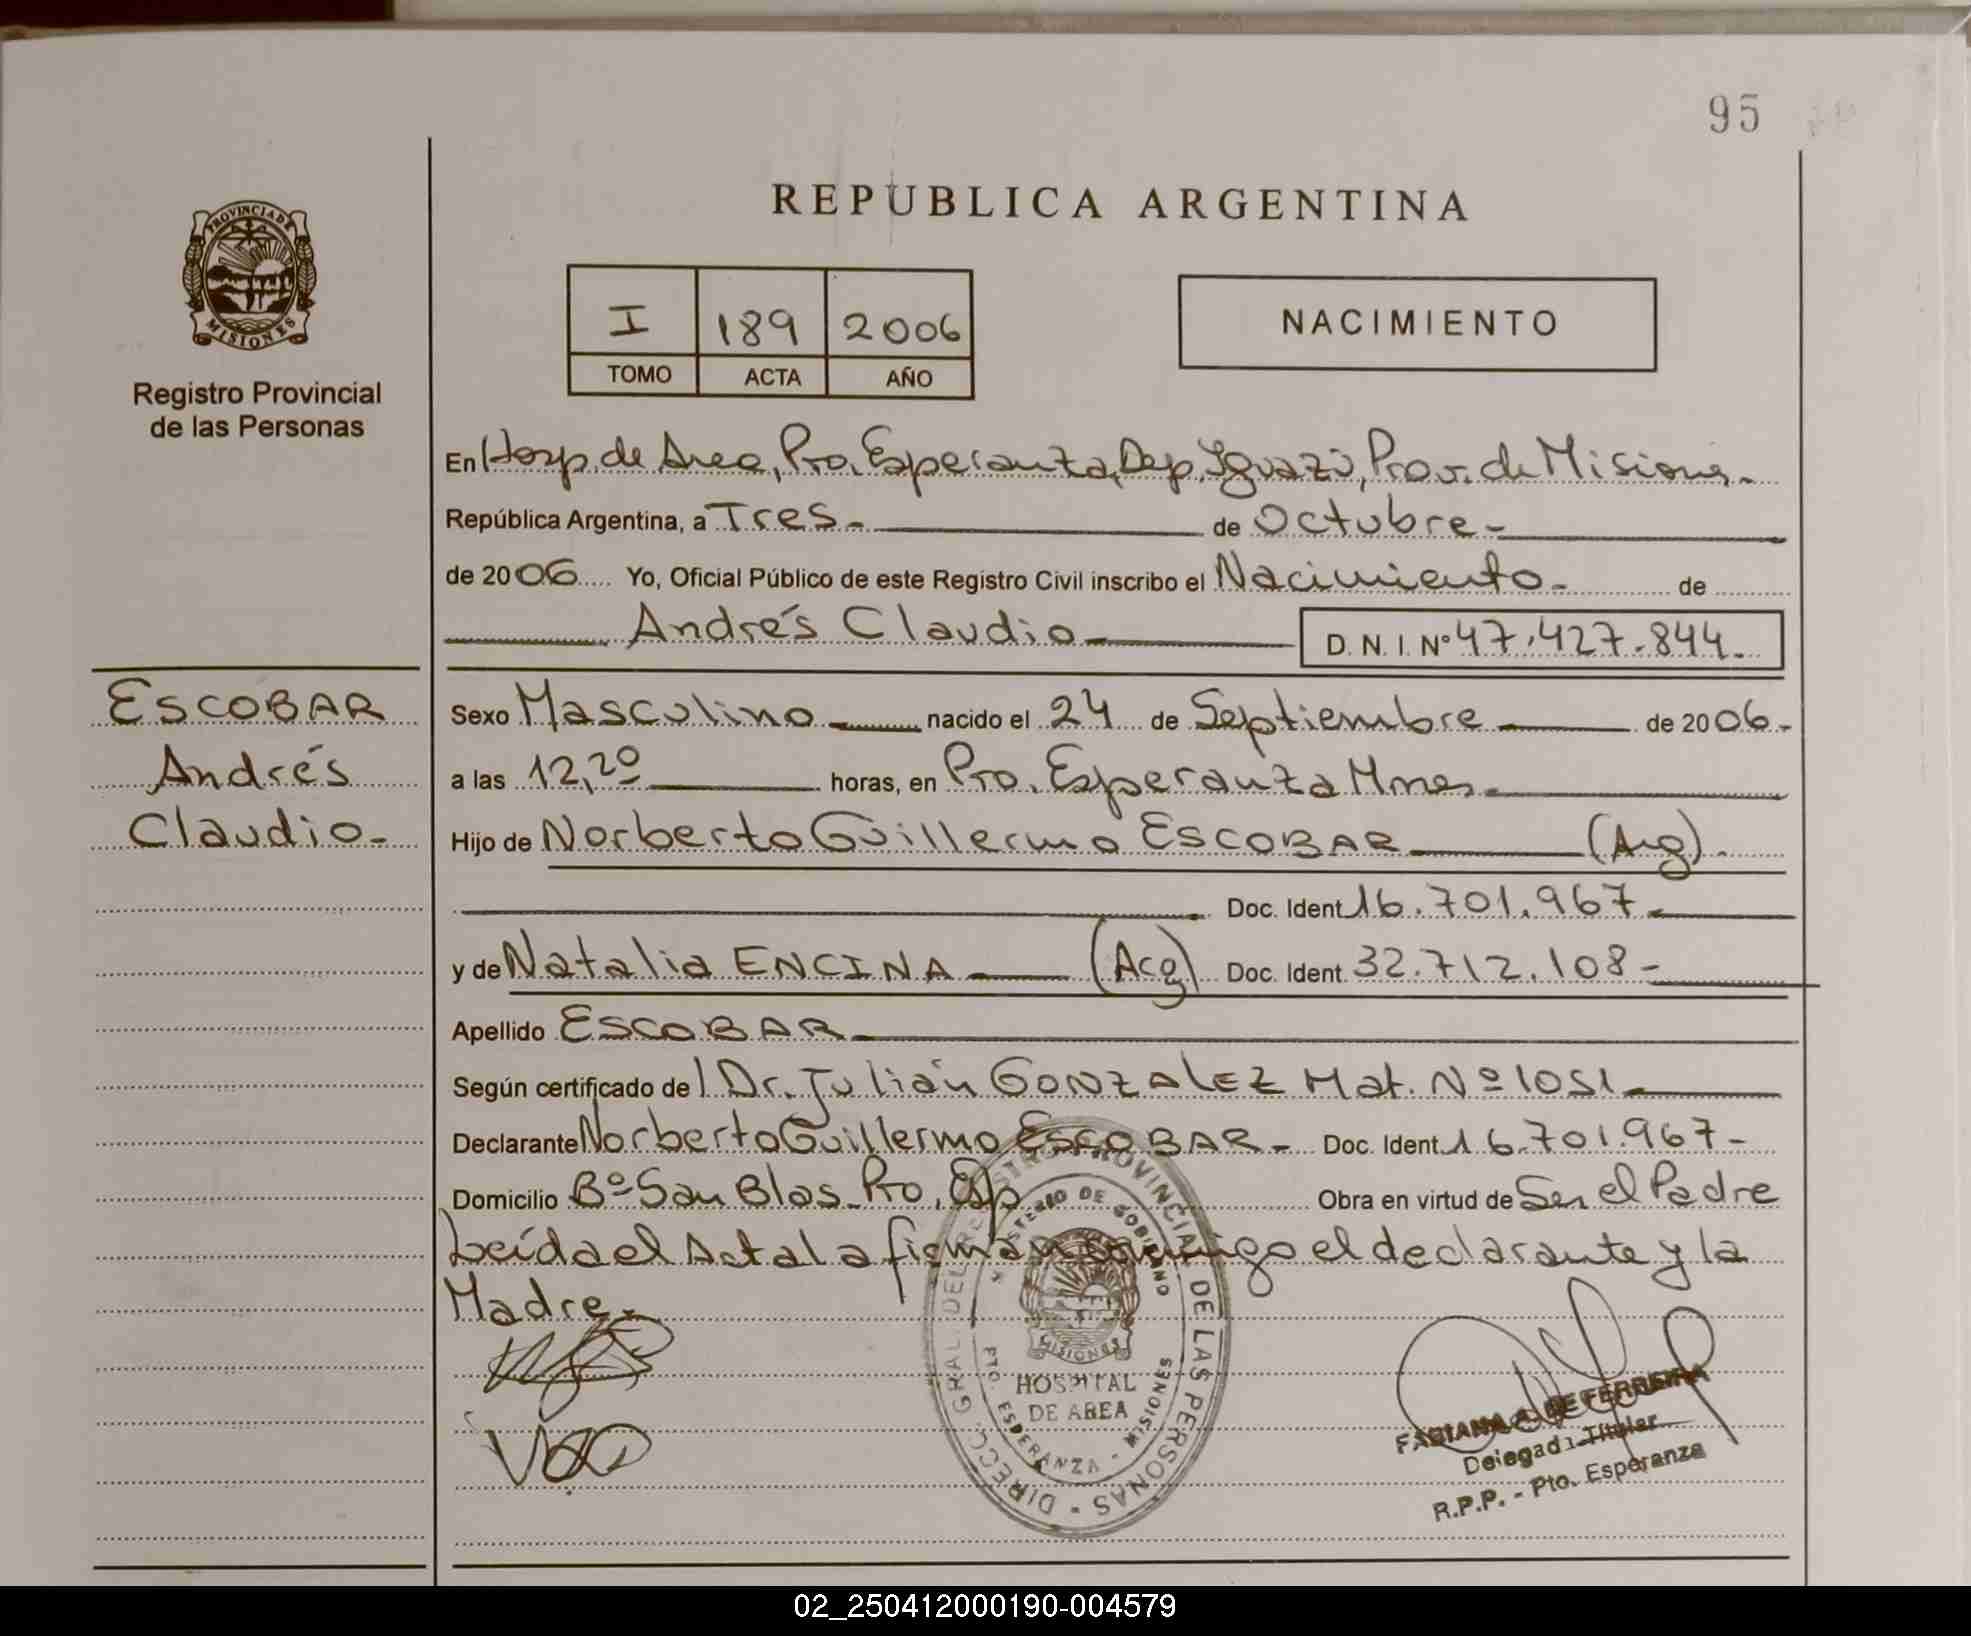 95
PROVINCIA DE
MISIONES
Registro Provincial
de las Personas
REPUBLICA ARGENTINA
I 189 2006
TOMO ACTA AÑO
NACIMIENTO
En Hosp. de Area, Pto. Esperanza, Dep. Iguazú, Prov. de Misiones.-
República Argentina, a Tres.- de Octubre.-
de 2006 Yo, Oficial Público de este Registro Civil inscribo el Nacimiento.- de
Andrés Claudio.- D. N. I. Nº 47.427.844.-
ESCOBAR
Andrés
Claudio.-
Sexo Masculino.- nacido el 24 de Septiembre.- de 2006.-
a las 12,20 horas, en Pto. Esperanza Mnes.-
Hijo de Norberto Guillermo ESCOBAR (Arg).
Doc. Ident. 16.701.967.-
y de Natalia ENCINA.- (Arg) Doc. Ident. 32.712.108.-
Apellido ESCOBAR.-
Según certificado del Dr. Julián GONZALEZ Mat. Nº 1051.-
Declarante Norberto Guillermo ESCOBAR.- Doc. Ident. 16.701.967.-
Domicilio Bº San Blas- Pto. Esp Obra en virtud de Ser el Padre
Leída el Acta la firman conmigo el declarante y la
Madre.-
DIRECC. GRAL. DEL REGISTRO PROVINCIAL DE LAS PERSONAS
MINISTERIO DE GOBIERNO
MISIONES
HOSPITAL
DE AREA
PTO. ESPERANZA - MISIONES
FABIANA A. DE FERREIRA
Delegada Titular
R.P.P. - Pto. Esperanza
02_250412000190-004579